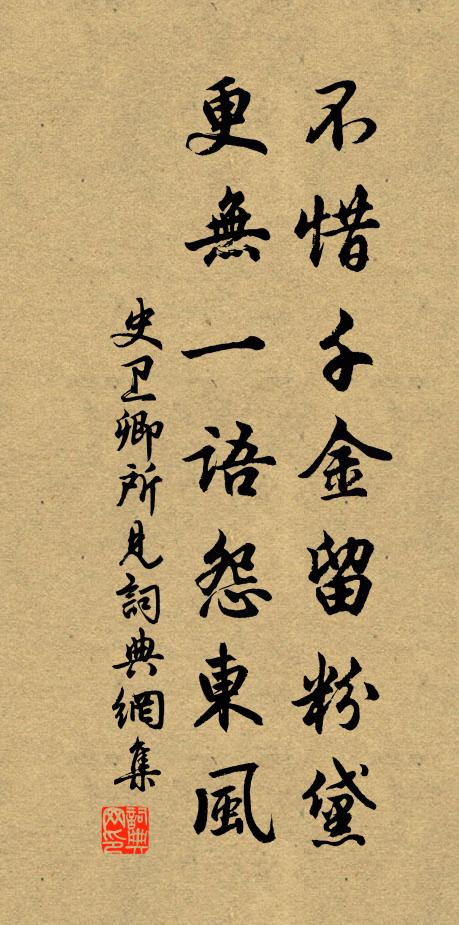 不惜千金留粉黛
更無一語怨東風
史卫卿所見詞典網集
詞典网印